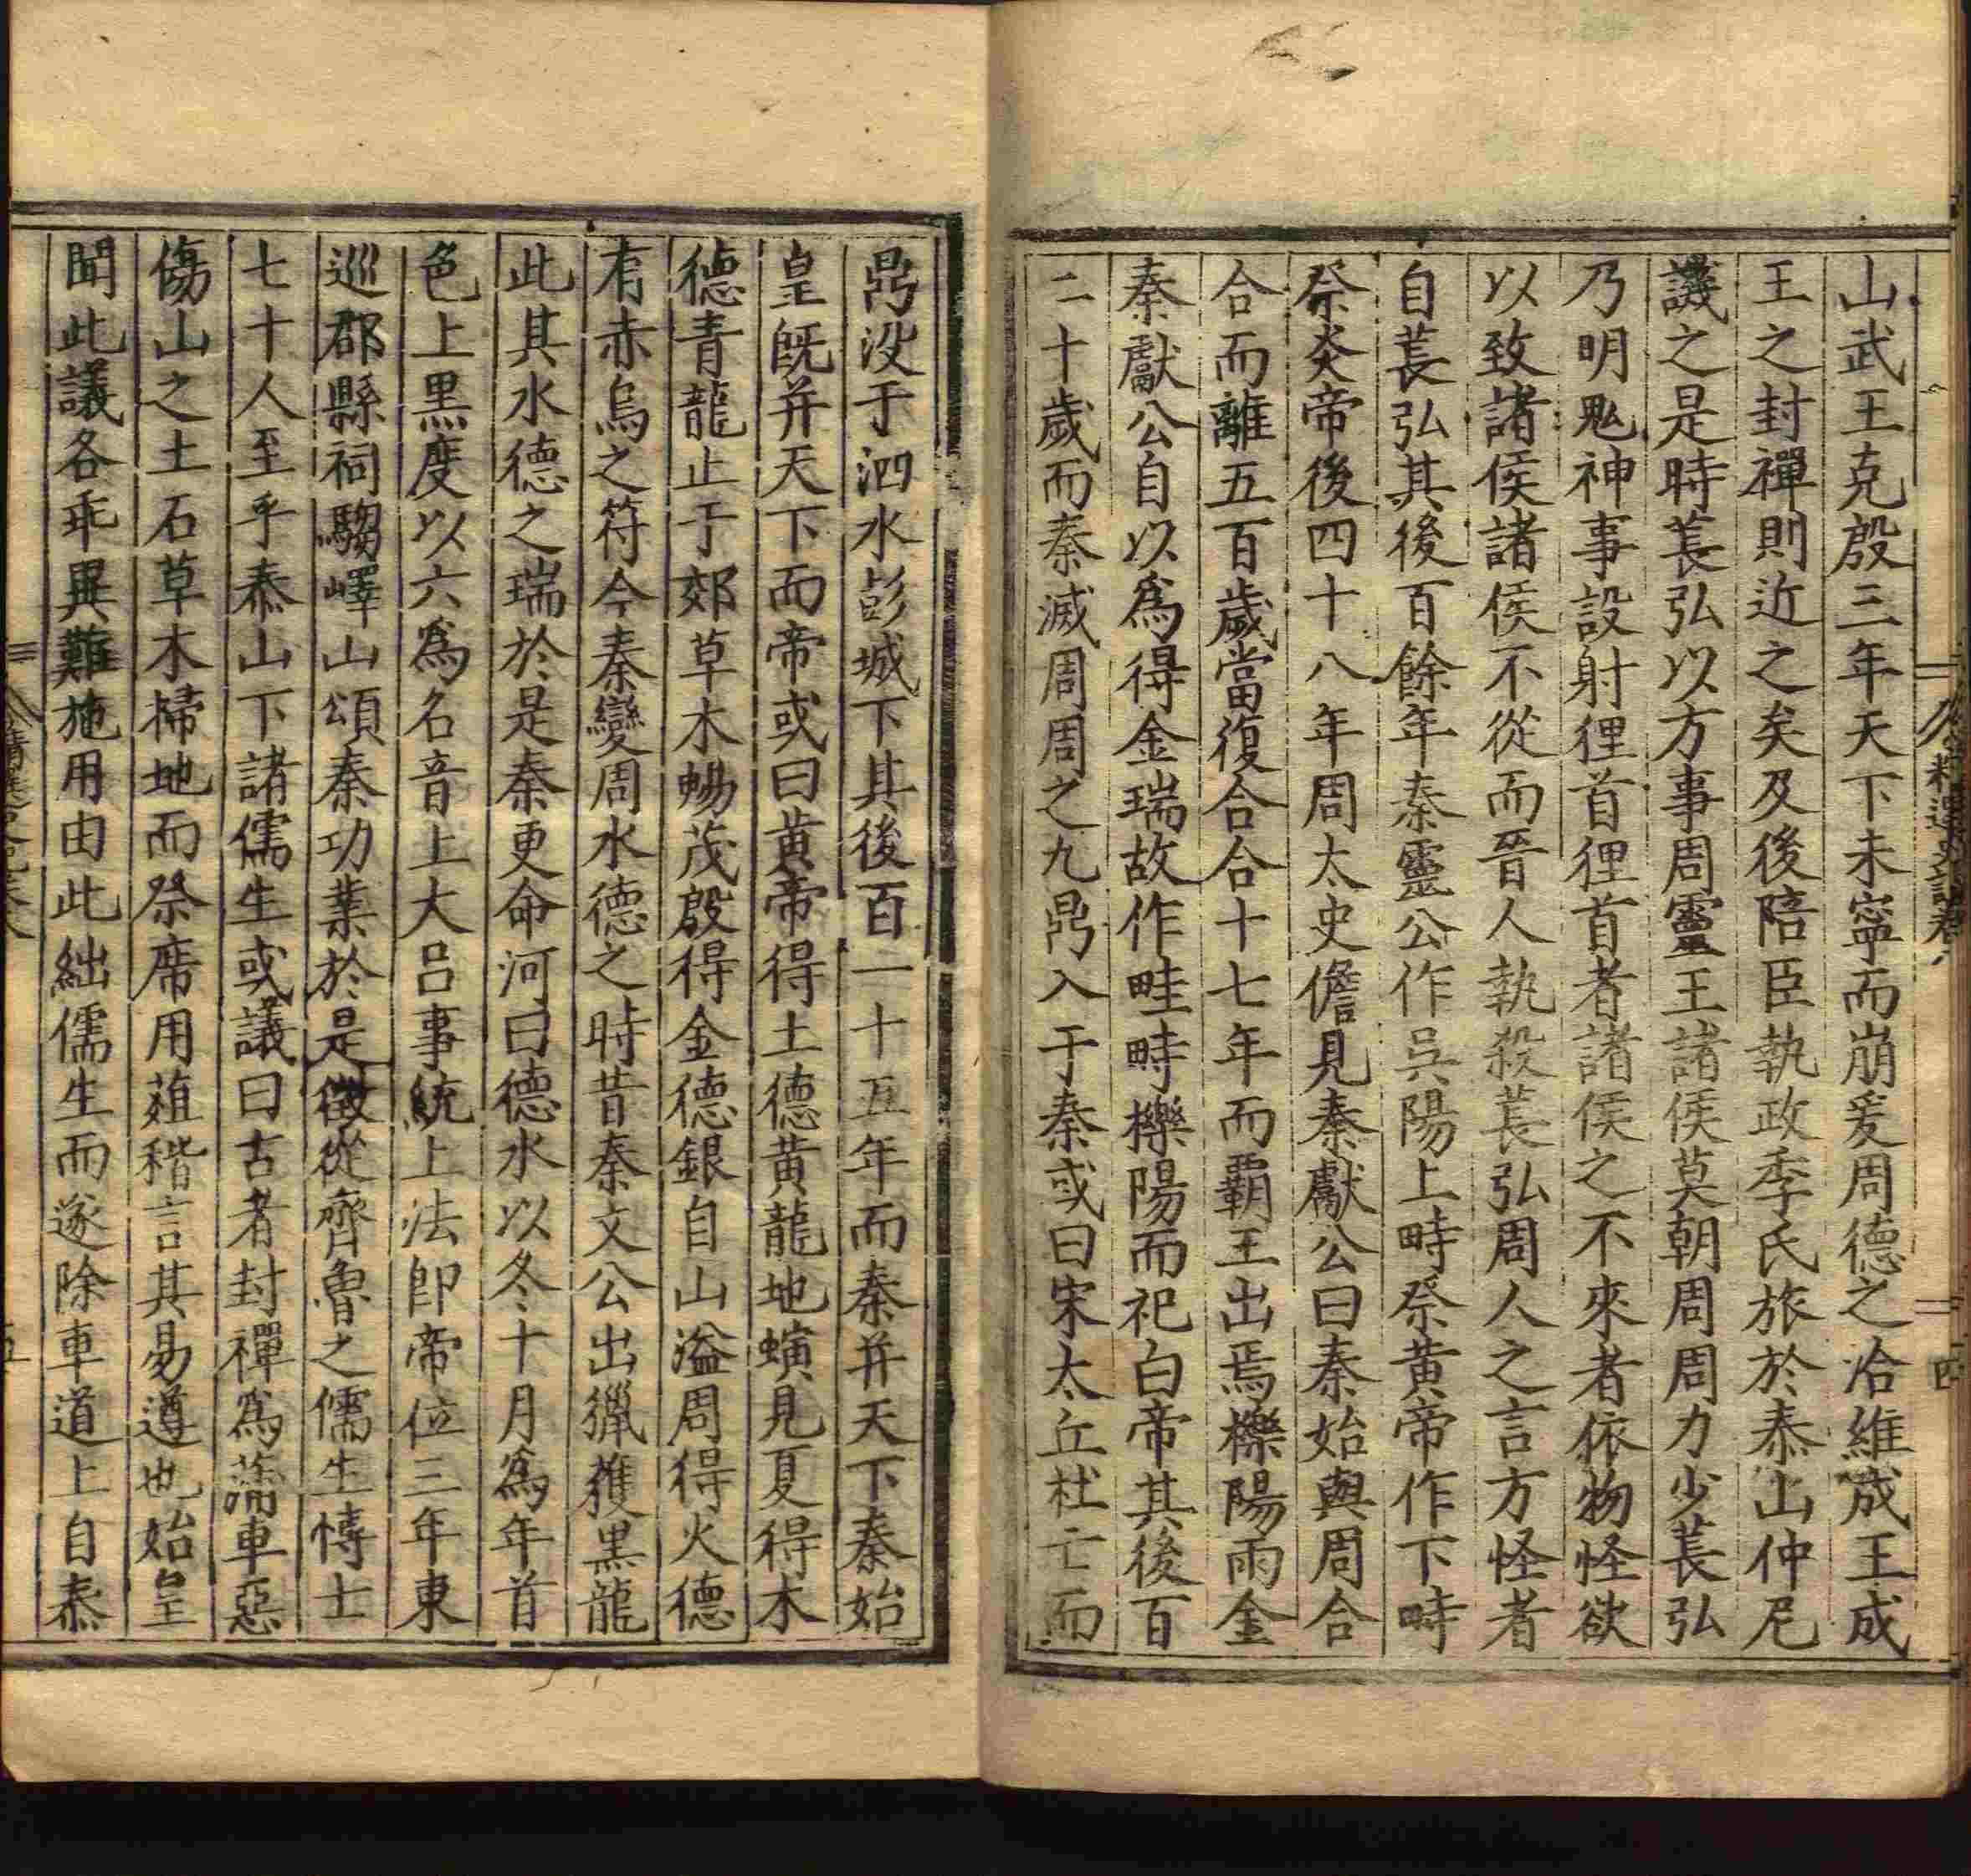 山武王克殷三年天下未寧而崩爰周德之洽維成王成
王之封禪則近之矣及後陪臣執政季氏旅於泰山仲尼
譏之是時萇弘以方事周靈王諸侯莫朝周周力少萇弘
乃明鬼神事設射狸首狸首者諸侯之不來者依物怪欲
以致諸侯諸侯不從而晉人執殺萇弘周人之言方怪者
自萇弘其後百餘年秦靈公作吳陽上畤祭黃帝作下畤
祭炎帝後四十八年周太史儋見秦獻公曰秦始與周合
合而離五百歲當復合合十七年而霸王出焉櫟陽雨金
秦獻公自以為得金瑞故作畦畤櫟陽而祀白帝其後百
二十歲而秦滅周周之九鼎入于秦或曰宋太丘社亡而
精選史記卷八
四
鼎沒于泗水彭城下其後百一十五年而秦并天下秦始
皇既并天下而帝或曰黃帝得土德黃龍地螾見夏得木
德青龍止于郊草木暢茂殷得金德銀自山溢周得火德
有赤烏之符今秦變周水德之時昔秦文公出獵獲黑龍
此其水德之瑞於是秦更命河曰德水以冬十月為年首
色上黑度以六為名音上大呂事統上法即帝位三年東
巡郡縣祠騶嶧山頌秦功業於是徵從齊魯之儒生博士
七十人至乎泰山下諸儒生或議曰古者封禪為蒲車惡
傷山之土石草木掃地而祭席用葅稭言其易遵也始皇
聞此議各乖異難施用由此絀儒生而遂除車道上自泰